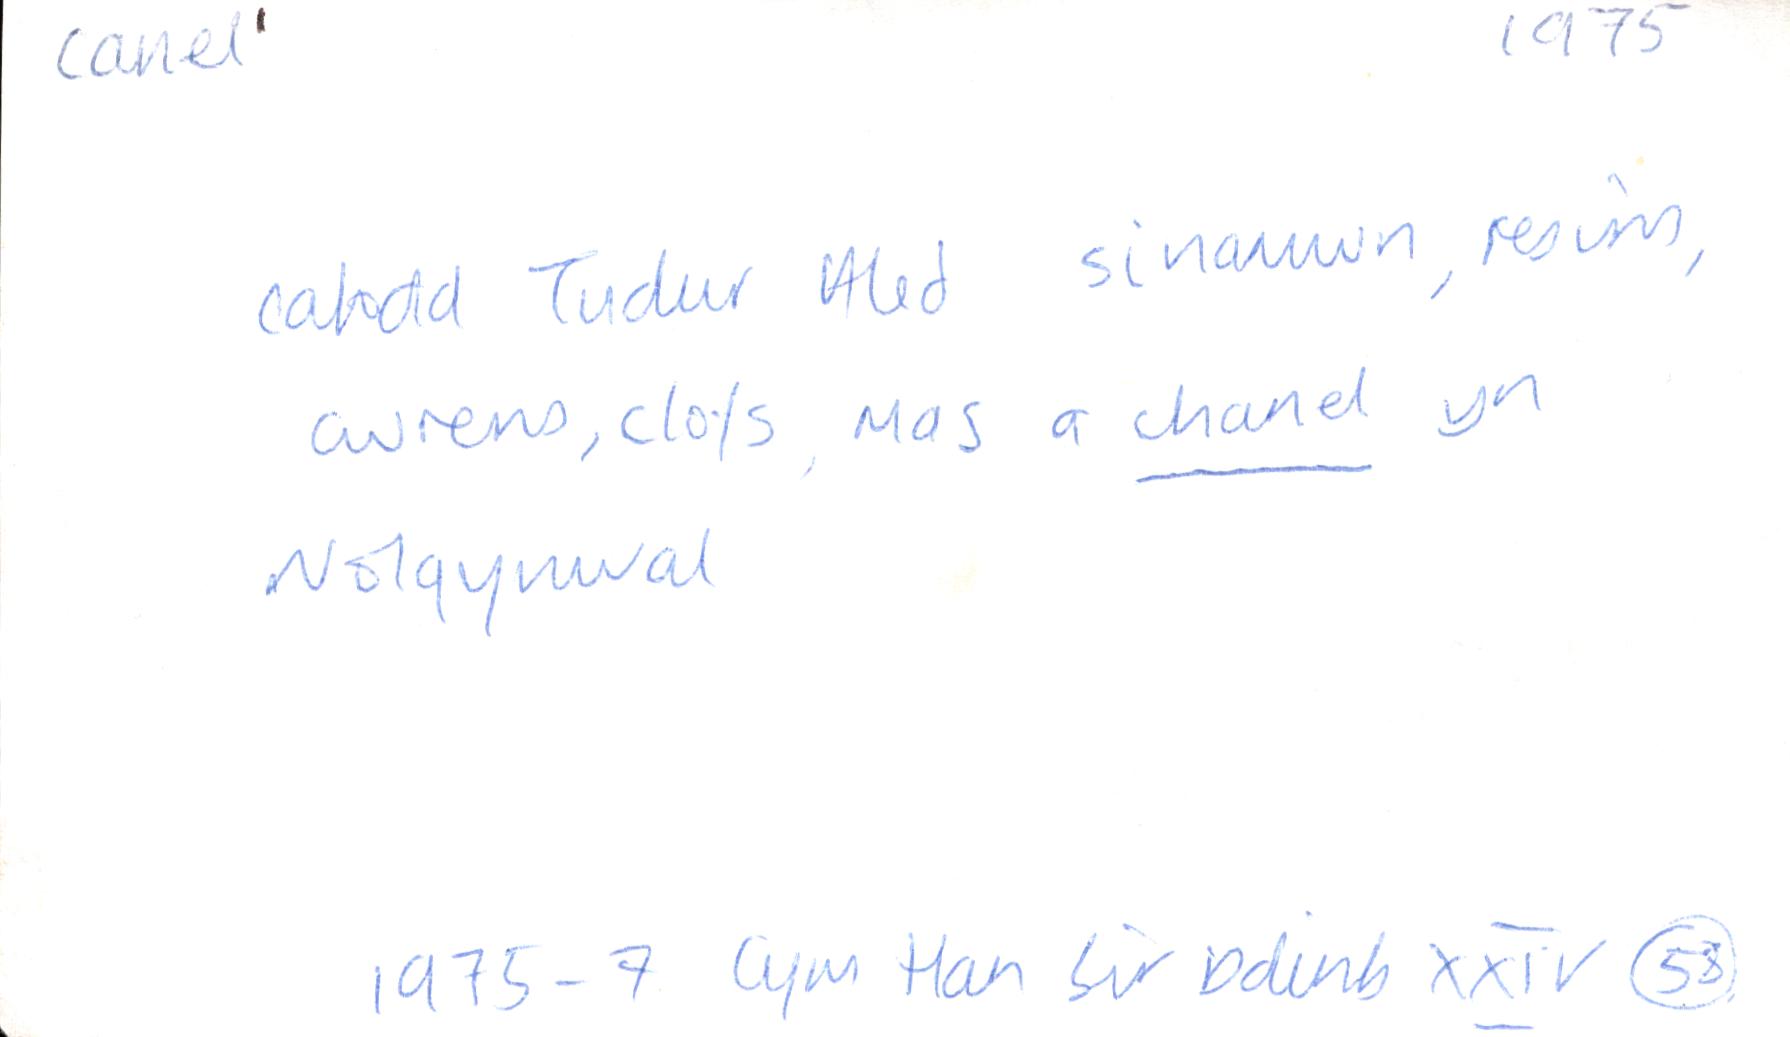 canel¹ 1975
cafodd Tudur Aled sinamwn, resins,
awrens, clofs, mas a chanel yn
Nolgynwal
1975-7 Cym Han Sir Ddinb XXIV 53